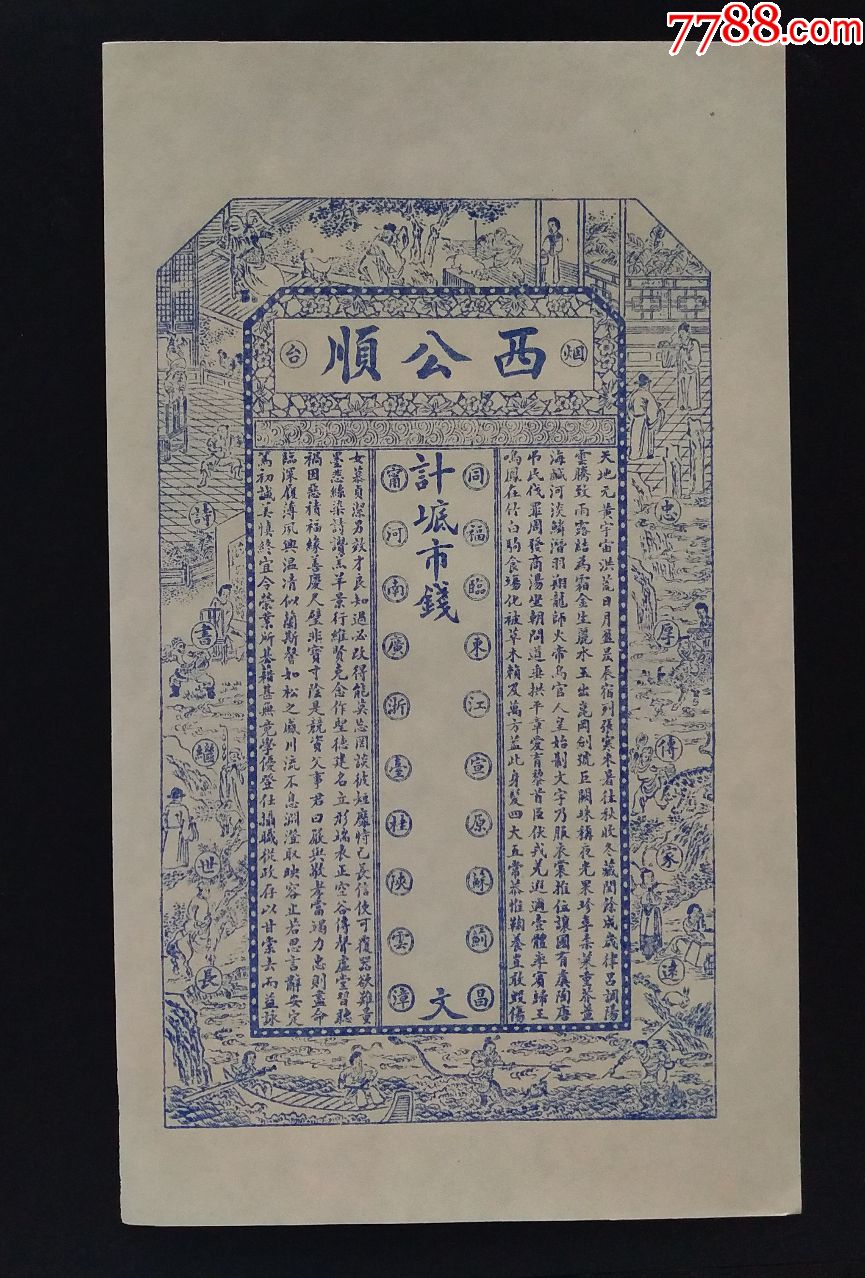 7788.com
烟
西公順
台
忠厚傳家遠
天地元黄宇宙洪荒日月盈昃辰宿列張寒来暑往秋收冬藏閏餘成歲律呂調陽
雲騰致雨露結為霜金生麗水玉出崑岡劍號巨闕珠稱夜光果珍李柰菜重芥薑
海鹹河淡鱗潛羽翔龍師火帝鳥官人皇始制文字乃服衣裳推位讓國有虞陶唐
弔民伐罪周發商湯坐朝問道垂拱平章愛育黎首臣伏戎羌遐邇壹體率賓歸王
鳴鳳在竹白駒食場化被草木賴及萬方蓋此身髮四大五常恭惟鞠養豈敢毀傷
同福臨東江宣原蘇薊昌
計坻市錢
文
甯河南廣浙臺桂陝雲漳
女慕貞潔男效才良知過必改得能莫忘罔談彼短靡恃己長信使可覆器欲難量
墨悲絲染詩讚羔羊景行維賢克念作聖德建名立形端表正空谷傳聲虛堂習聽
禍因惡積福緣善慶尺璧非寶寸陰是競資父事君曰嚴與敬孝當竭力忠則盡命
臨深履薄夙興温凊似蘭斯馨如松之盛川流不息淵澄取映容止若思言辭安定
篤初誠美慎終宜令榮業所基籍甚無竟學優登仕攝職從政存以甘棠去而益詠
詩書繼世長